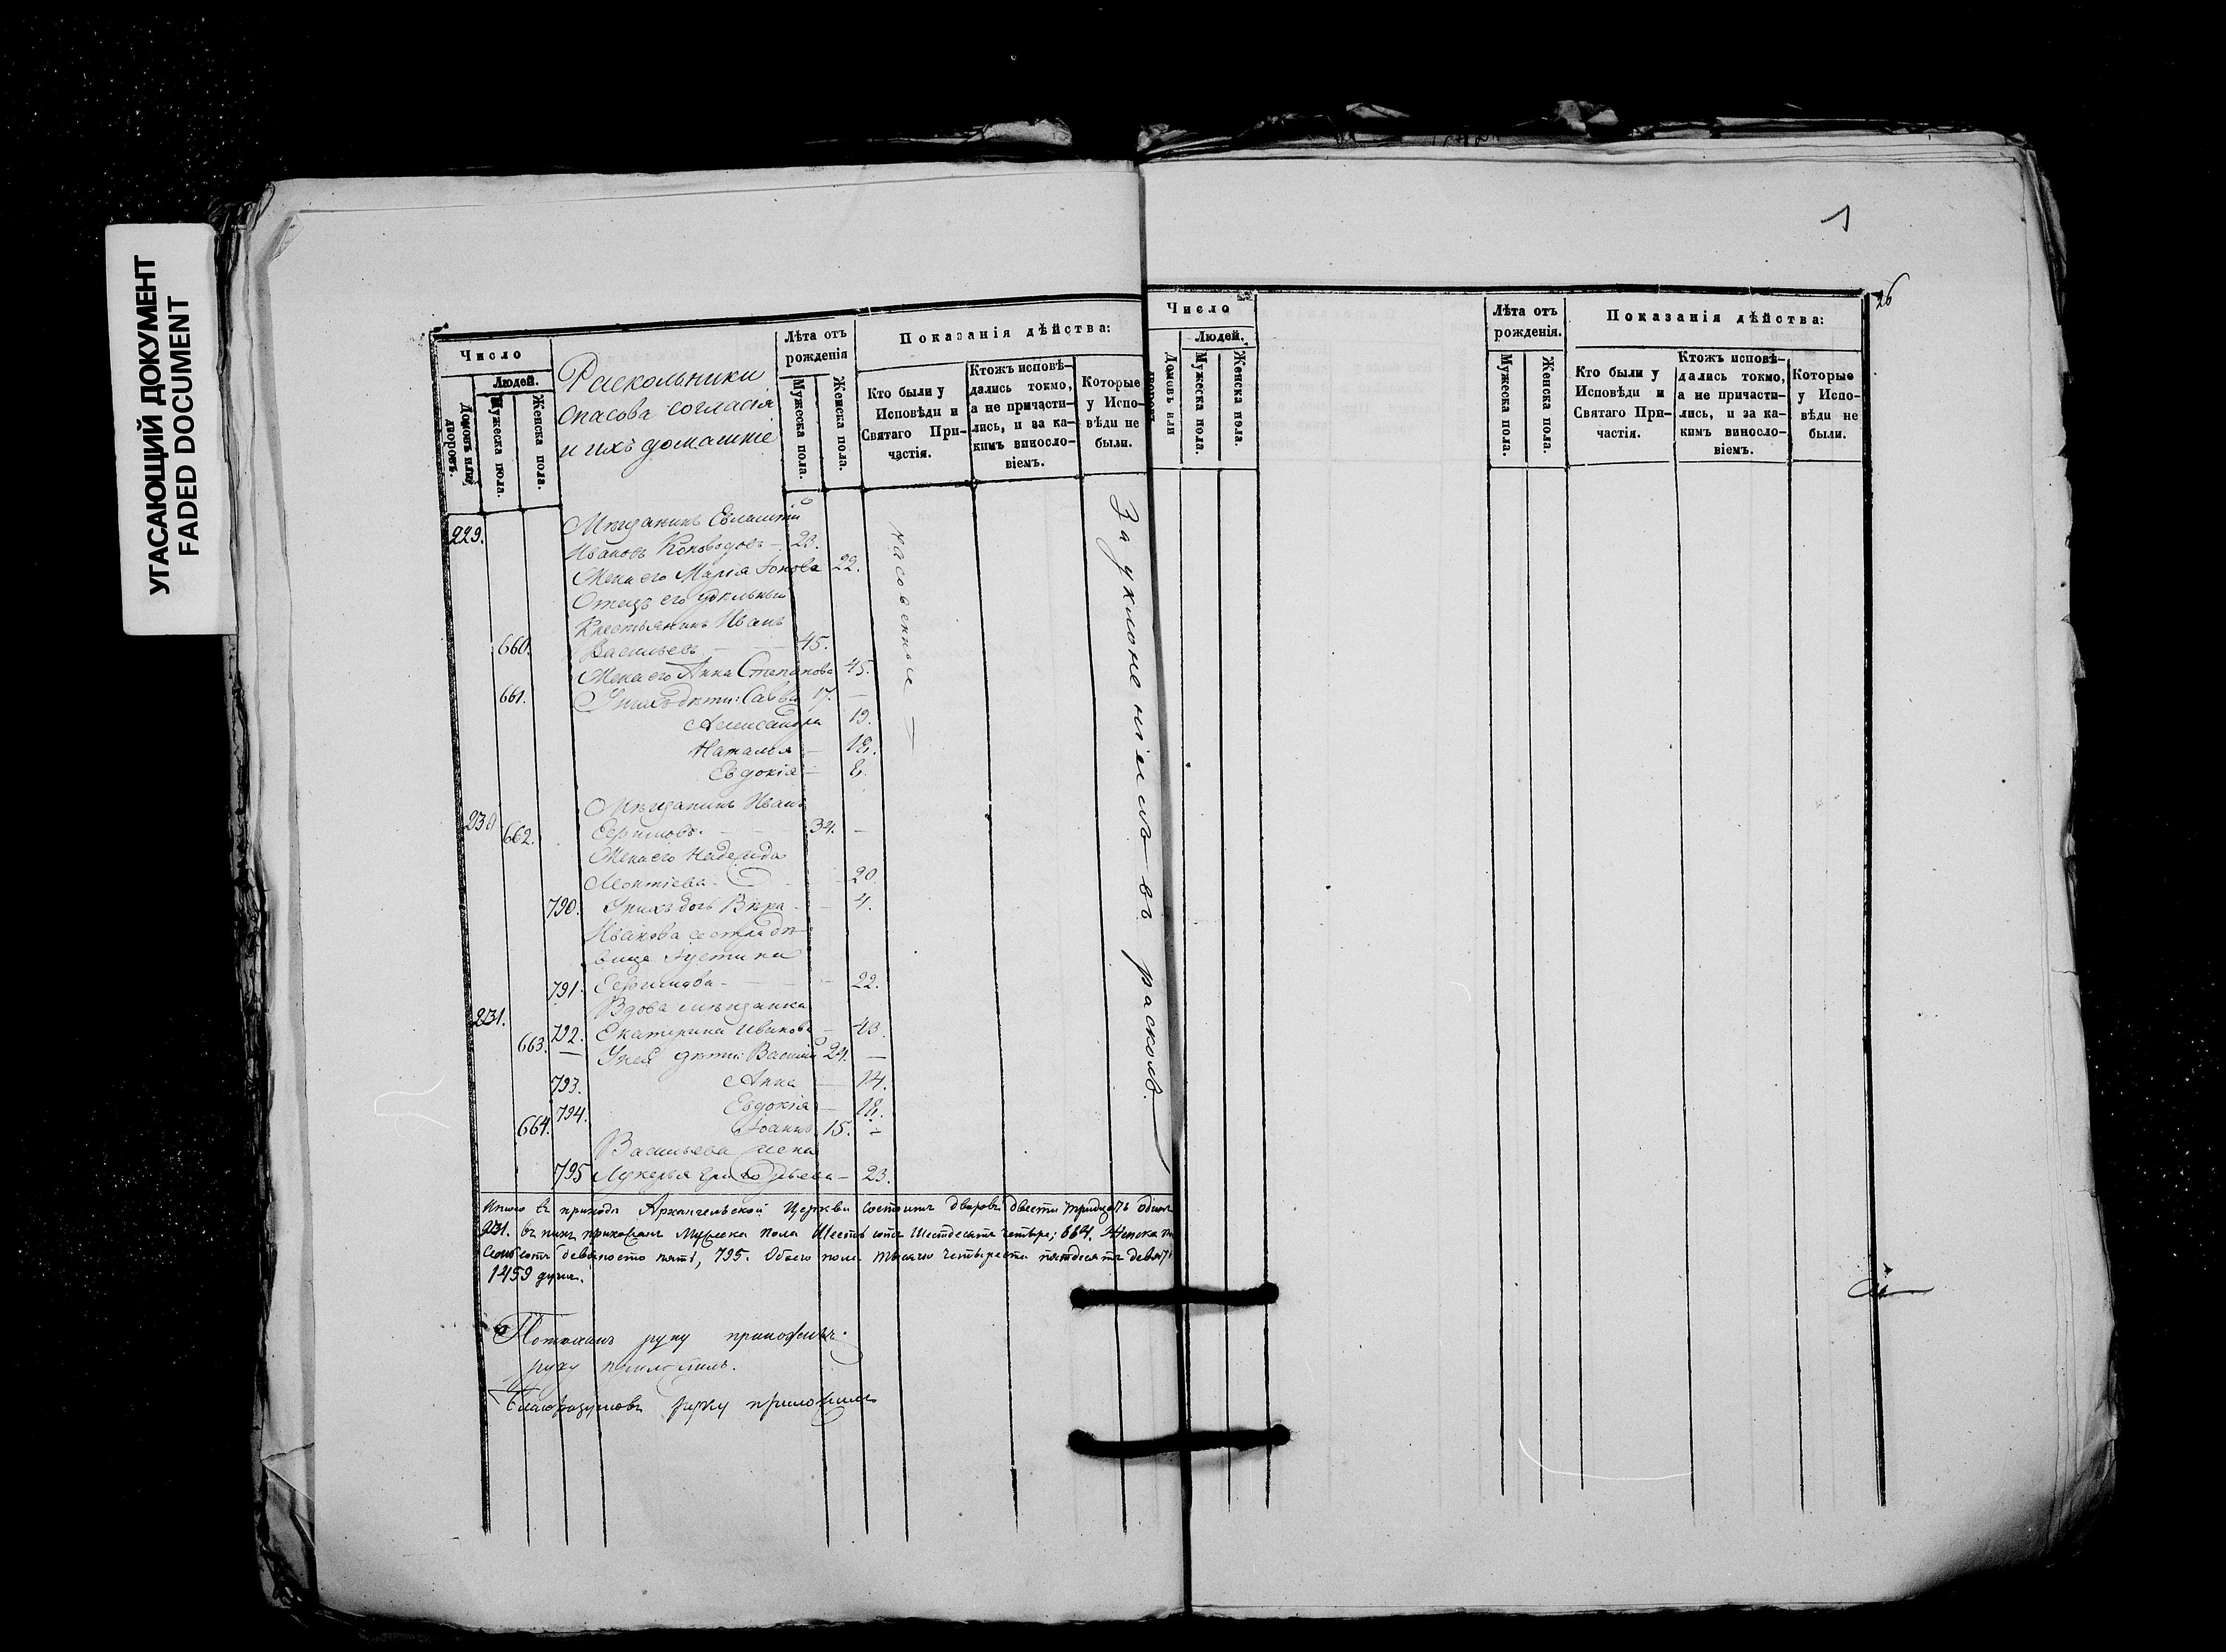 УГАСАЮЩИЙ ДОКУМЕНТ
FADED DOCUMENT
1
26
Число
Людей.
Домовъ или дворовъ.
Мужеска пола.
Женска пола.
Раскольники
Спасова согласія
и ихъ домашніе
Лѣта отъ рожденія
Мужеска пола.
Женска пола.
Показанія дѣйства:
Кто были у Исповѣди и Святаго При-частія.
Ктожъ исповѣ-дались токмо, а не причасти-лись, и за ка-кимъ винословіемъ.
Которые у Испо-вѣди не были.
229. Мѣщанинъ
Ивановъ 23.
Жена его Марія 22.
Отецъ его удѣльный
Крестьянинъ Иванъ
660. Васильевъ 45.
Жена его Анна Степанова 45.
661. У нихъ дѣти: Савва 17. —
Александра 19.
Наталья — 12.
Евдокія —
Мѣщанинъ Иванъ
230 662. Ефимовъ. — 34. —
Жена его Надежда
Леонтіева 20.
790. У нихъ дочь Вѣра 4.
Иванова сестра дѣ-
вица Іустина
791. Ефимова — 22.
231. Вдова мѣщанка
792. Екатерина Иванова — 43.
663. — У ней дѣти: Василій 24. —
793. Анна — 14.
794. Евдокія — 12.
664. Іоаннъ 15. —
Васильева жена
795 Лукерья — 23.
За уклоненіемъ въ расколъ.
Итого въ приходѣ Архангельской Церкви состоитъ дворовъ двести тридцать одинъ
231. въ нихъ прихожанъ Мужеска пола Шесть сотъ Шестдесятъ четыре, 664. Женска
семь сотъ девяносто пять, 795. Обоего пола тысяча четыреста пятдесятъ девять
1459 душъ.
руку приложилъ.
руку приложилъ.
Благоразумовъ руку приложилъ
Число
Людей.
Домовъ или дворовъ.
Мужеска пола.
Женска пола.
Лѣта отъ рожденія.
Мужеска пола.
Женска пола.
Показанія дѣйства:
Кто были у Исповѣди и Святаго При-частія.
Ктожъ исповѣ-дались токмо, а не причасти-лись, и за ка-кимъ винословіемъ.
Которые у Испо-вѣди не были.